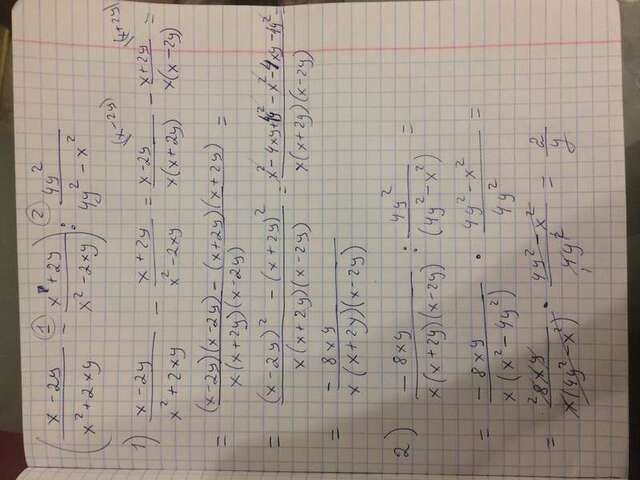 ( (x - 2y)/(x² + 2xy) ①- (x + 2y)/(x² - 2xy) ) ②: 4y²/(4y² - x²)
1) (x - 2y)/(x² + 2xy) - (x + 2y)/(x² - 2xy) = (x - 2y)/(x(x + 2y)) \(x - 2y) - (x + 2y)/(x(x - 2y)) \(x + 2y) =
= ((x - 2y)(x - 2y) - (x + 2y)(x + 2y))/(x(x + 2y)(x - 2y)) =
= ((x - 2y)² - (x + 2y)²)/(x(x + 2y)(x - 2y)) = (x² - 4xy + 4y² - x² - 4xy - 4y²)/(x(x + 2y)(x - 2y)) =
= (-8xy)/(x(x + 2y)(x - 2y))
2) (-8xy)/(x(x + 2y)(x - 2y)) : 4y²/(4y² - x²) =
= (-8xy)/(x(x² - 4y²)) · (4y² - x²)/(4y²) =
= 2 8xy/(x(4y² - x²)) · (4y² - x²)/(1 4y²) = 2/y